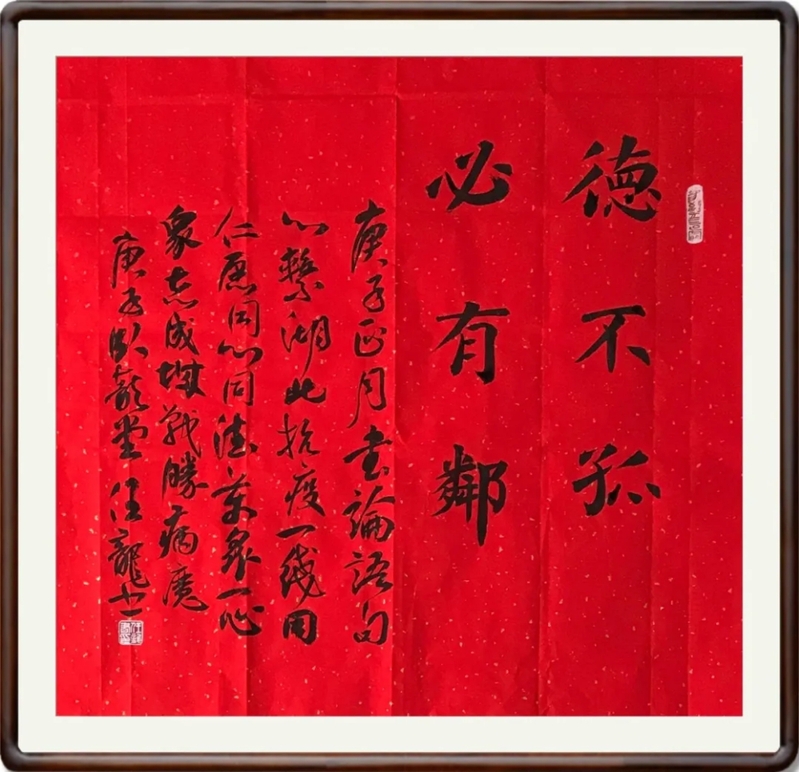 德不孤
必有鄰
庚子正月書論語句
心繫湖北抗疫一线同
仁愿同心同德萬衆一心
衆志成城戰勝病魔
庚子卧龍堂 任龍书